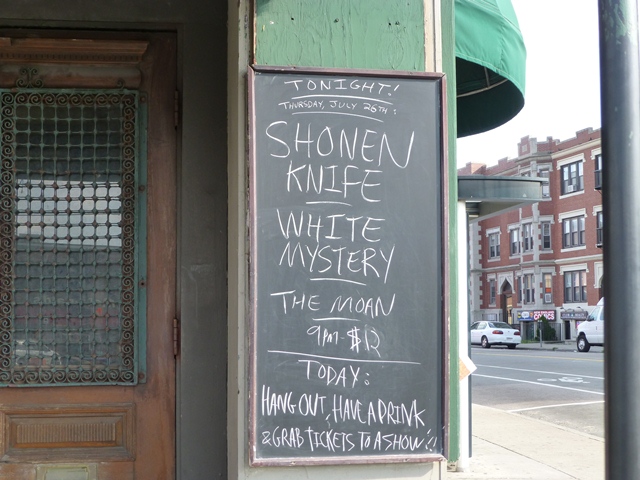 TONIGHT!
THURSDAY, JULY 26TH:
SHONEN
KNIFE
WHITE
MYSTERY
THE MOAN
9PM-$12
TODAY:
HANG OUT, HAVE A DRINK
& GRAB TICKETS TO A SHOW!!